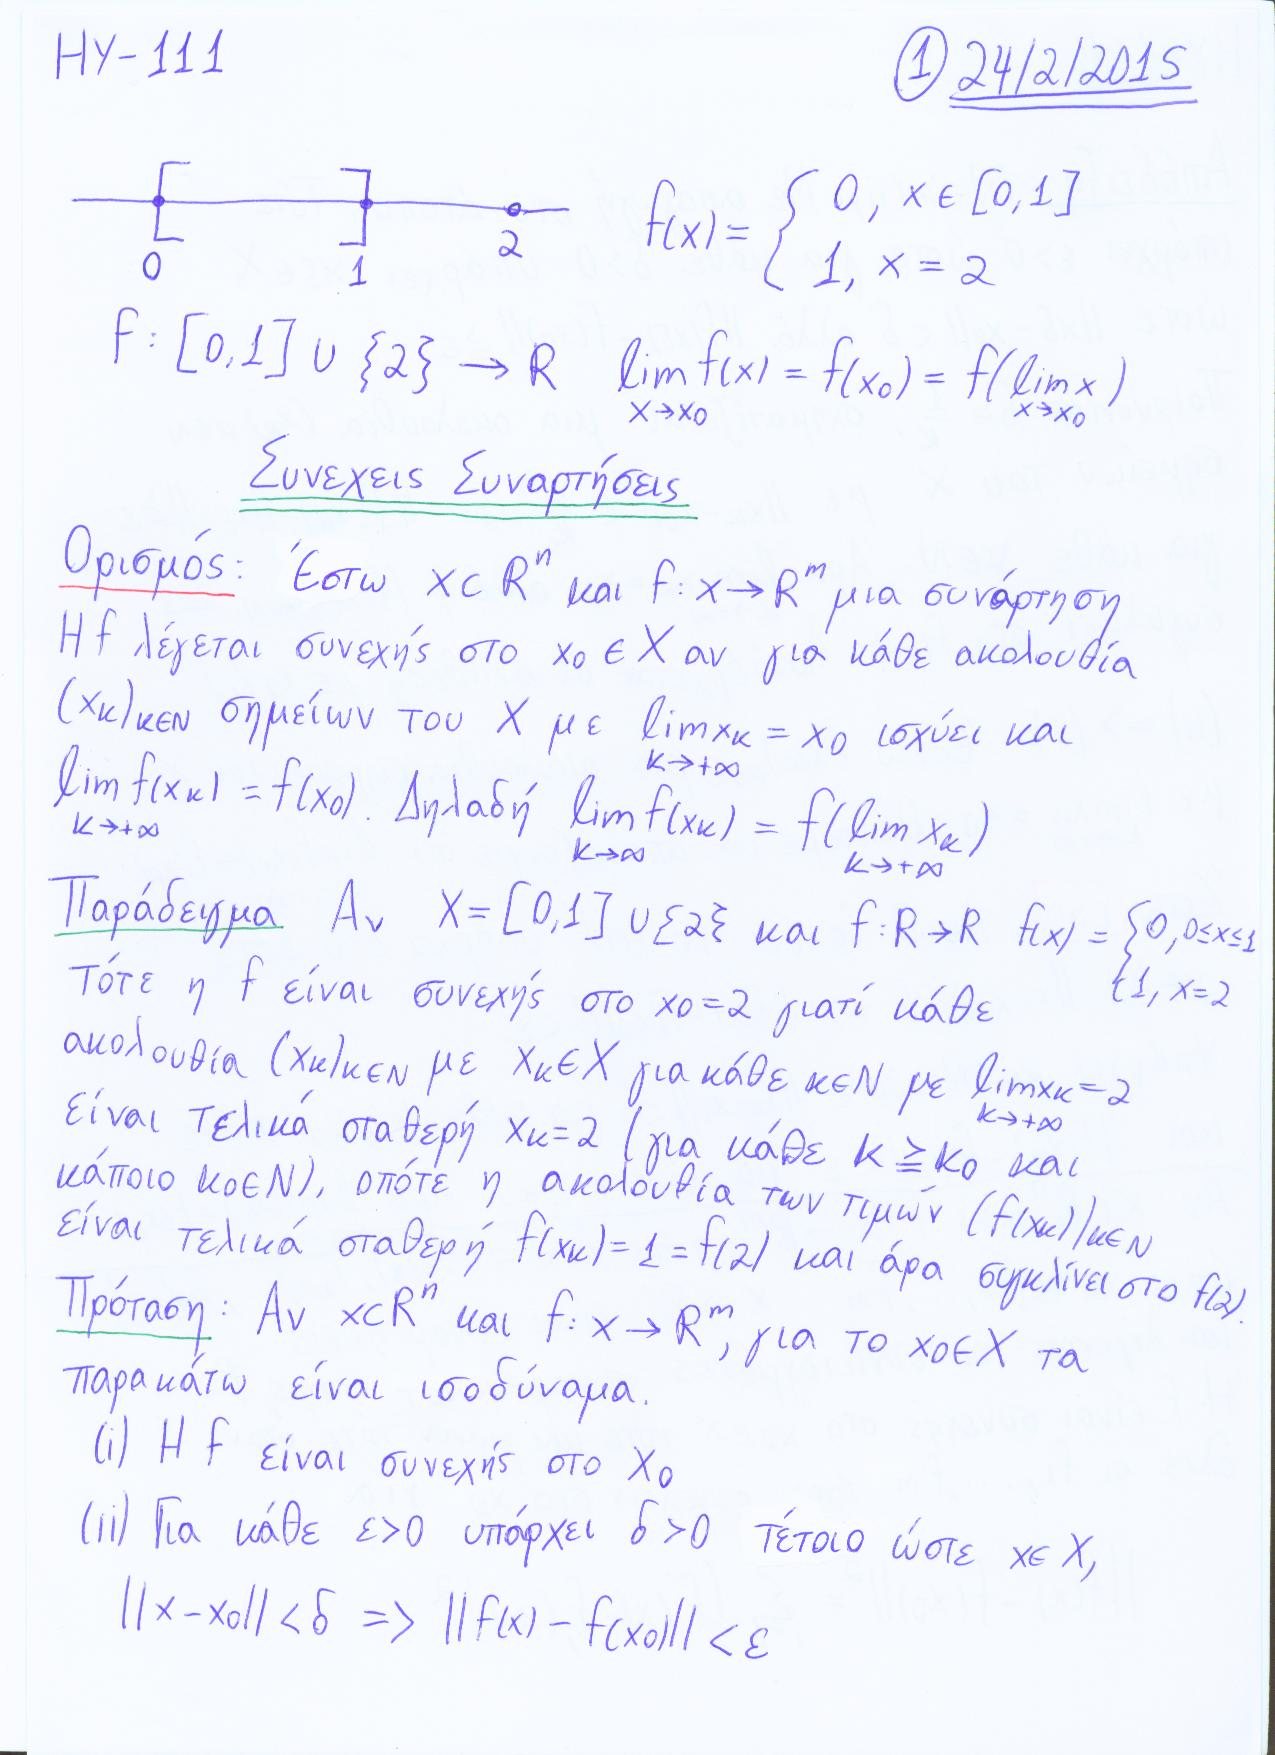 HY-111
① 24/2/2015
0 1 2
f(x) = { 0, x ∈ [0,1]
1, x = 2
f: [0,1] ∪ {2} → R lim f(x) = f(x₀) = f(lim x)
x→x₀ x→x₀
Συνεχεις Συναρτήσεις
Ορισμός: Έστω x⊂Rⁿ και f: x→Rᵐ μια συνάρτηση
Η f λέγεται συνεχής στο x₀∈X αν για κάθε ακολουθία
(xκ)κ∈N σημείων του X με lim xκ = x₀ ισχύει και
κ→+∞
lim f(xκ) = f(x₀). Δηλαδή lim f(xκ) = f(lim xκ)
κ→+∞ κ→∞ κ→+∞
Παράδειγμα Αν X=[0,1]∪{2} και f:R→R f(x) = {0, 0≤x≤1
1, x=2
Τότε η f είναι συνεχής στο x₀=2 γιατί κάθε
ακολουθία (xκ)κ∈N με xκ∈X για κάθε κ∈N με lim xκ=2
κ→+∞
είναι τελικά σταθερή xκ=2 (για κάθε κ≧κ₀ και
κάποιο κ₀∈N), οπότε η ακολουθία των τιμών (f(xκ))κ∈N
είναι τελικά σταθερή f(xκ)=1=f(2) και άρα συγκλίνει στο f(2).
Πρόταση: Αν x⊂Rⁿ και f: x→Rᵐ, για το x₀∈X τα
παρακάτω είναι ισοδύναμα.
(i) Η f είναι συνεχής στο x₀
(ii) Για κάθε ε>0 υπάρχει δ>0 τέτοιο ώστε x∈X,
||x-x₀||<δ => ||f(x)-f(x₀)||<ε